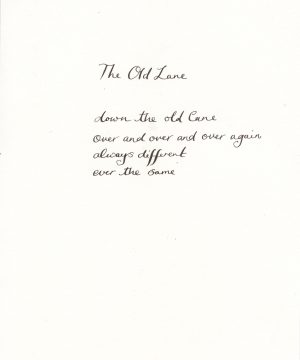 The Old Lane
down the old lane
over and over and over again
always different
ever the same